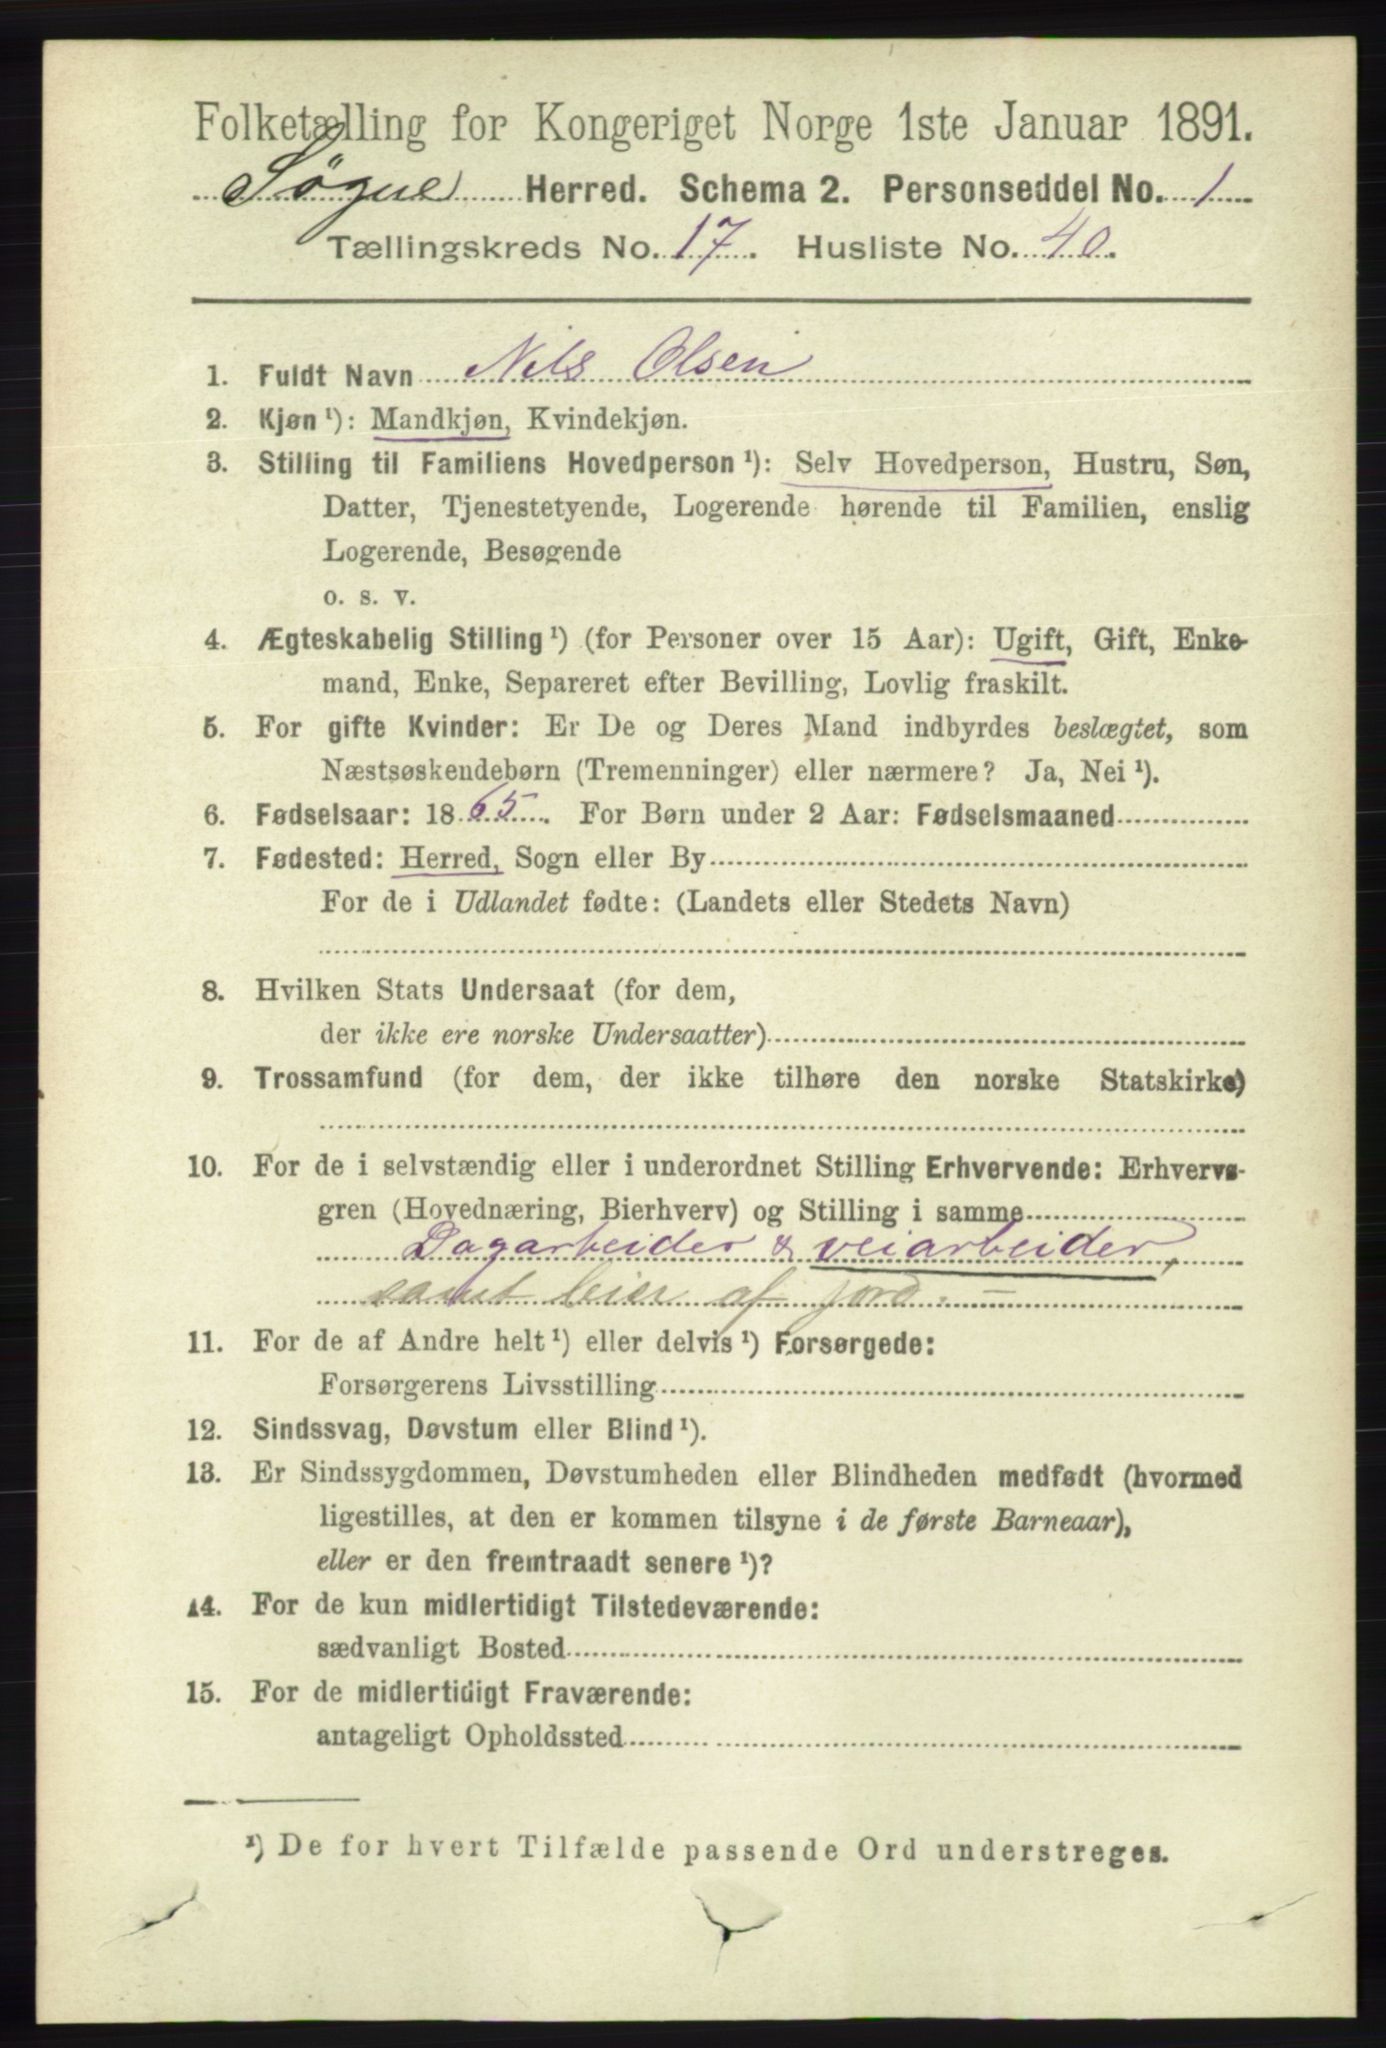 Folketælling for Kongeriget Norge 1ste Januar 1891.
Søgne Herred. Schema 2. Personseddel No. 1
Tællingskreds No. 17. Husliste No. 40.
1. Fuldt Navn Nils Olsen
2. Kjøn ¹): Mandkjøn, Kvindekjøn.
3. Stilling til Familiens Hovedperson ¹): Selv Hovedperson, Hustru, Søn,
Datter, Tjenestetyende, Logerende hørende til Familien, enslig
Logerende, Besøgende
o. s. v.
4. Ægteskabelig Stilling ¹) (for Personer over 15 Aar): Ugift, Gift, Enke-
mand, Enke, Separeret efter Bevilling, Lovlig fraskilt.
5. For gifte Kvinder: Er De og Deres Mand indbyrdes beslægtet, som
Næstsøskendebørn (Tremenninger) eller nærmere? Ja, Nei ¹).
6. Fødselsaar: 1865. For Børn under 2 Aar: Fødselsmaaned
7. Fødested: Herred, Sogn eller By
For de i Udlandet fødte: (Landets eller Stedets Navn)
8. Hvilken Stats Undersaat (for dem,
der ikke ere norske Undersaatter)
9. Trossamfund (for dem, der ikke tilhøre den norske Statskirke)
10. For de i selvstændig eller i underordnet Stilling Erhvervende: Erhvervs-
gren (Hovednæring, Bierhverv) og Stilling i samme
Dagarbeider & veiarbeider,
samt leier af jord. —
11. For de af Andre helt ¹) eller delvis ¹) Forsørgede:
Forsørgerens Livsstilling
12. Sindssvag, Døvstum eller Blind ¹).
13. Er Sindssygdommen, Døvstumheden eller Blindheden medfødt (hvormed
ligestilles, at den er kommen tilsyne i de første Barneaar),
eller er den fremtraadt senere ¹)?
14. For de kun midlertidigt Tilstedeværende:
sædvanligt Bosted
15. For de midlertidigt Fraværende:
antageligt Opholdssted
¹) De for hvert Tilfælde passende Ord understreges.